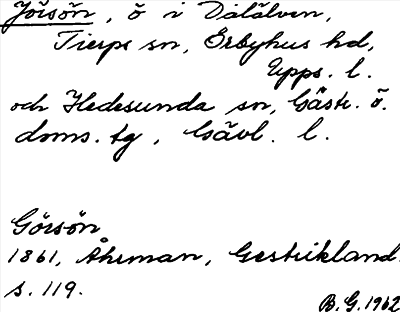 Jörsön, ö i Dalälven,
Tierps sn, Örbyhus hd,
Upps. l.
och Hedesunda sn, Gästr. ö.
doms. tg, Gävl. l.
Görsön
1861, Åhrman, Gestrikland.
s. 119.
B.G. 1962